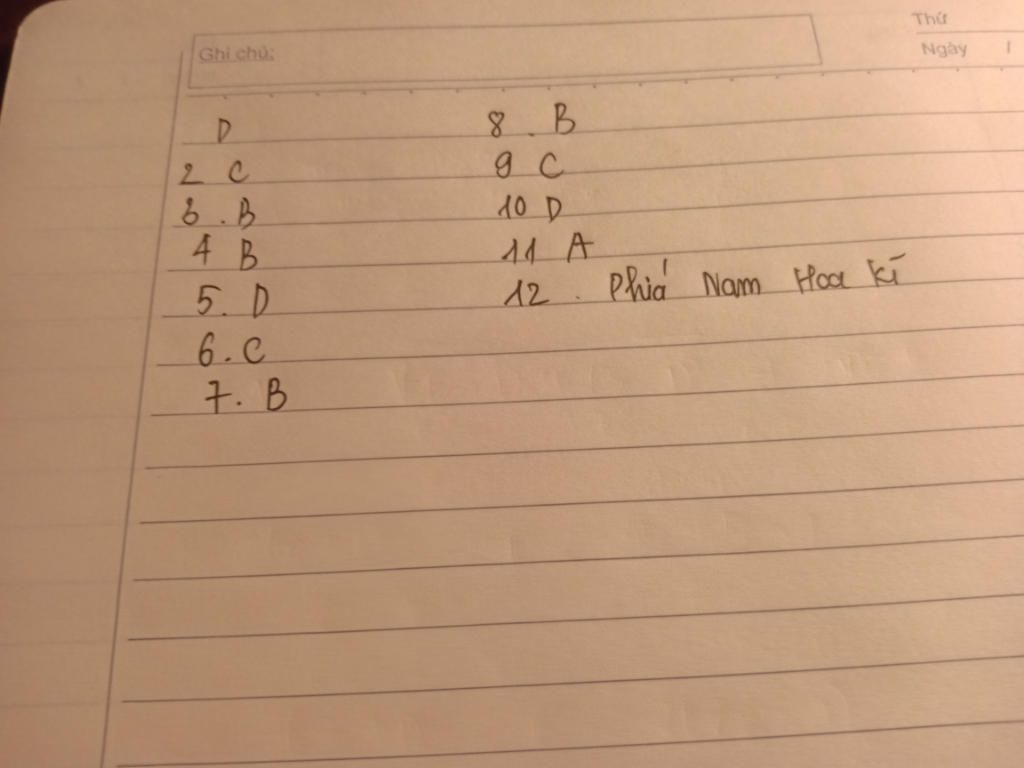 Ghi chú:
Thứ
Ngày /
D
2 C
3 . B
4 B
5. D
6. C
7. B
8 . B
9 C
10 D
11 A
12 . Phiá Nam Hoa kì